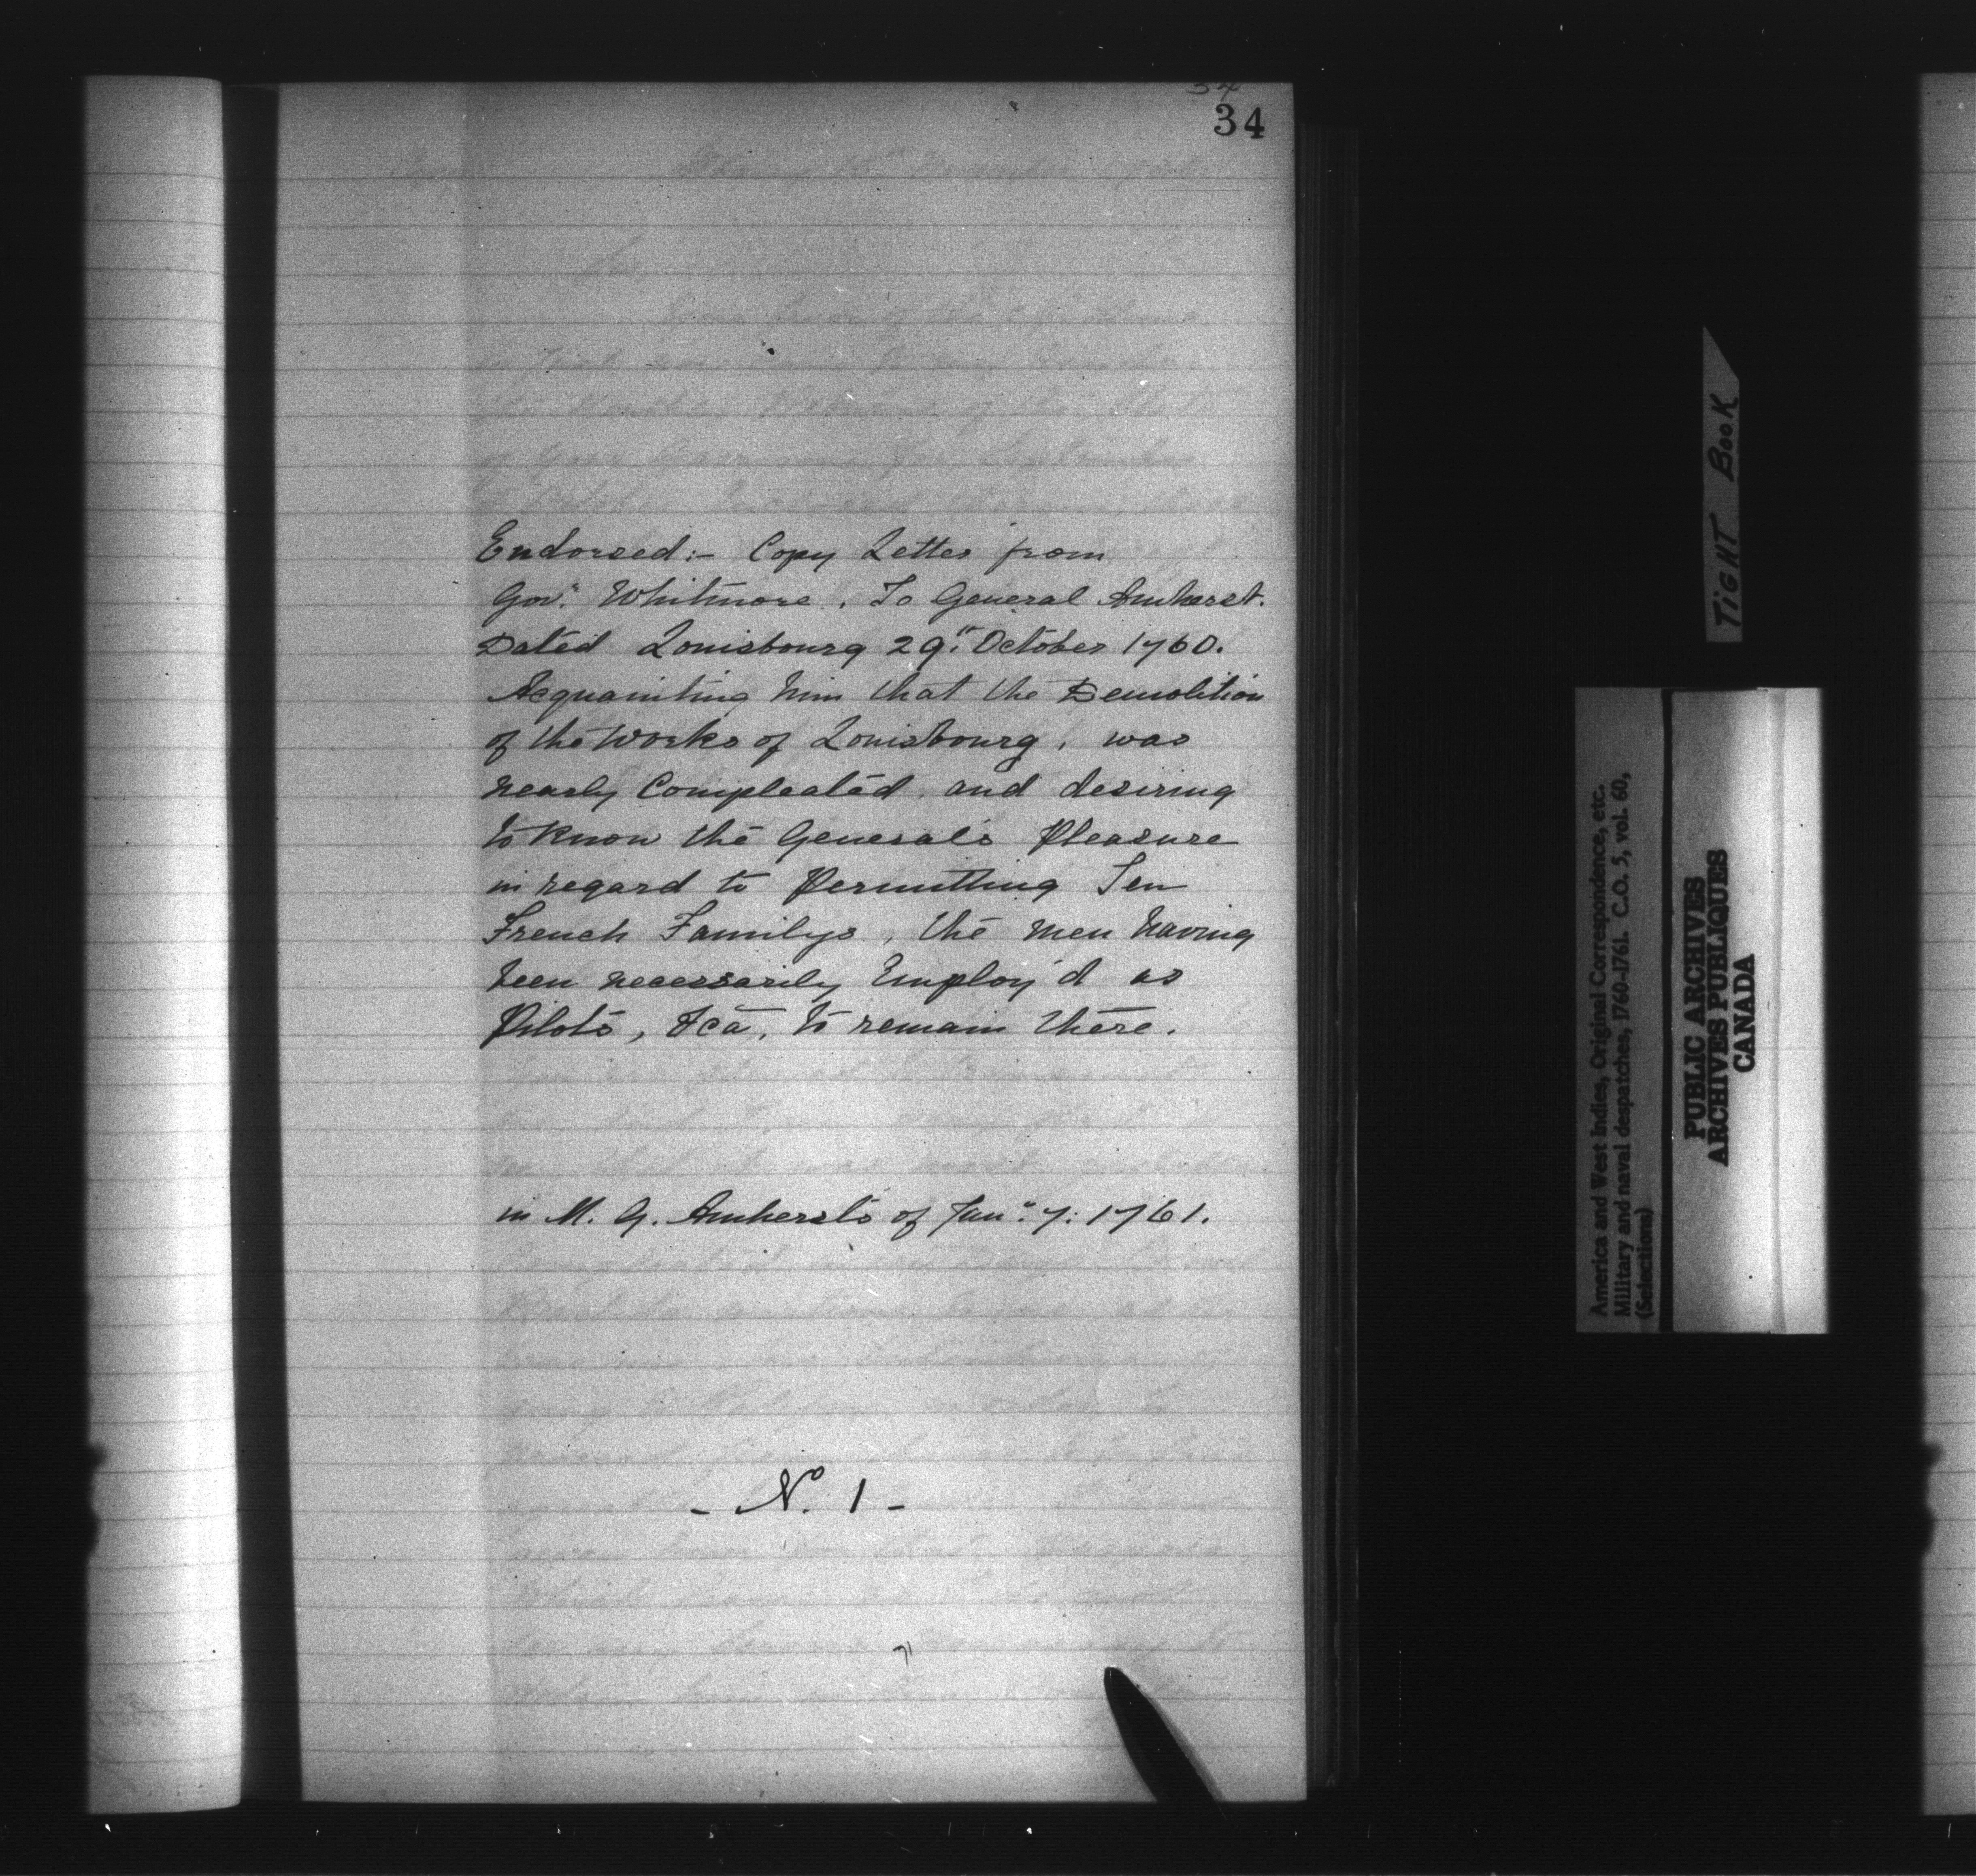 34
Endorsed:- Copy Letter from
Govr. Whitmore. To General Amherst.
Dated Louisbourg 29th. October 1760.
Acquainting him that the Demolition
of the Works of Louisbourg, was
nearly Compleated. and desiring
to know the Generals Pleasure
in regard to Permitting Ten
French Familys, the men having
been necessarily Employ'd as
Pilots, &ca, to remain there.
in M. G. Amherst's of Jany. 7: 1761.
- No. 1 -
TIGHT BOOK
America and West Indies, Original Correspondence, etc.
Military and naval despatches, 1760-1761. C.O. 5, vol. 60,
(Selections)
PUBLIC ARCHIVES
ARCHIVES PUBLIQUES
CANADA